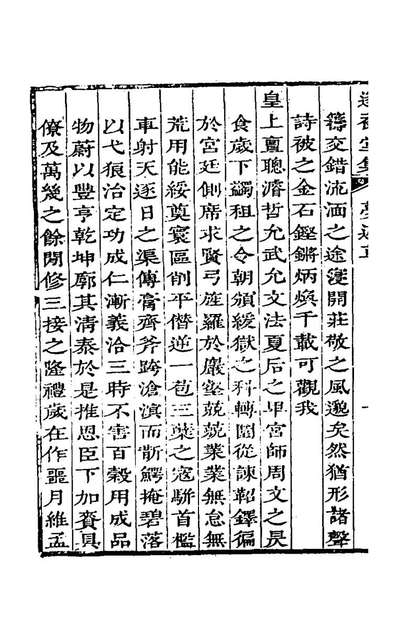 籌交錯流湎之途濅開莊敬之風邈矣然猶形諸聲
詩被之金石鏗鏘炳煥千載可觀我
皇上亶聰濬哲允武允文法夏后之卑宮師周文之昃
食歲下蠲租之令朝頒緩獄之科轉圜從諫鞀鐸徧
於宮廷側席求賢弓旌羅於巖壑兢兢業業無怠無
荒用能綏奠寰區削平僭逆一苞三葉之寇駢首檻
車射天逐日之渠傳膏齊斧跨滄溟而斮鰐掩碧落
以弋狼治定功成仁漸義洽三時不害百穀用成品
物蔚以豐亨乾坤廓其清泰於是推恩臣下加賚具
僚及萬幾之餘閒修三接之隆禮歲在作噩月維孟